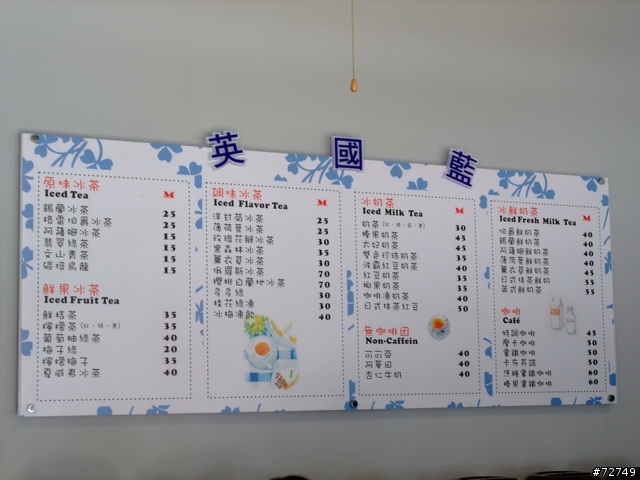 英 國 藍
原味冰茶
Iced Tea M
錫蘭冰茶 25
格雷伯爵冰茶 25
阿薩姆冰茶 25
翡翠綠茶 15
文山青茶 15
碳焙烏龍 15
鮮果冰茶
Iced Fruit Tea
鮮桔茶 35
檸檬茶(紅、綠、青) 35
葡萄柚綠茶 40
梅子綠 20
檸檬梅子 35
夏威夷冰茶 40
調味冰茶
Iced Flavor Tea M
洋甘菊冰茶 25
薄荷葉冰茶 25
玫瑰花瓣冰茶 30
黑森林冰茶 35
薰衣草冰茶 30
俄羅斯冰茶 70
櫻桃白蘭地冰茶 70
多多綠 30
桂花綠凍 30
冰梅凍飲 40
冰奶茶
Iced Milk Tea M
奶茶 30
榛果奶茶 45
太妃奶茶 45
雙色珍珠奶茶 35
波霸紅豆奶茶 40
紅豆奶茶 35
椰果奶茶 35
咖啡凍奶茶 40
日式抹茶紅豆 50
無咖啡因
Non-Caffein
可可亞 40
阿華田 40
杏仁牛奶 40
冰鮮奶茶
Iced Fresh Milk Tea M
伯爵鮮奶茶 40
錫蘭鮮奶茶 40
阿薩姆鮮奶茶 40
薄荷葉鮮奶茶 40
薰衣草鮮奶茶 45
日式抹茶鮮奶茶 55
英式鮮奶茶 55
咖啡
Café
特調咖啡 45
摩卡咖啡 50
拿鐵咖啡 50
卡布其諾 50
焦糖拿鐵咖啡 60
榛果拿鐵咖啡 60
#72749